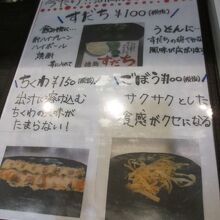 すだち ¥100(税抜)
酎ハイプレーン
ハイボール
焼酎
すだち
うどんに…
すだちの
風味が
ちくわ ¥150(税抜)
出汁に溶け込む
ちくわの
たまらない!
ごぼう ¥100(税抜)
サクサクとした
食感がクセになる